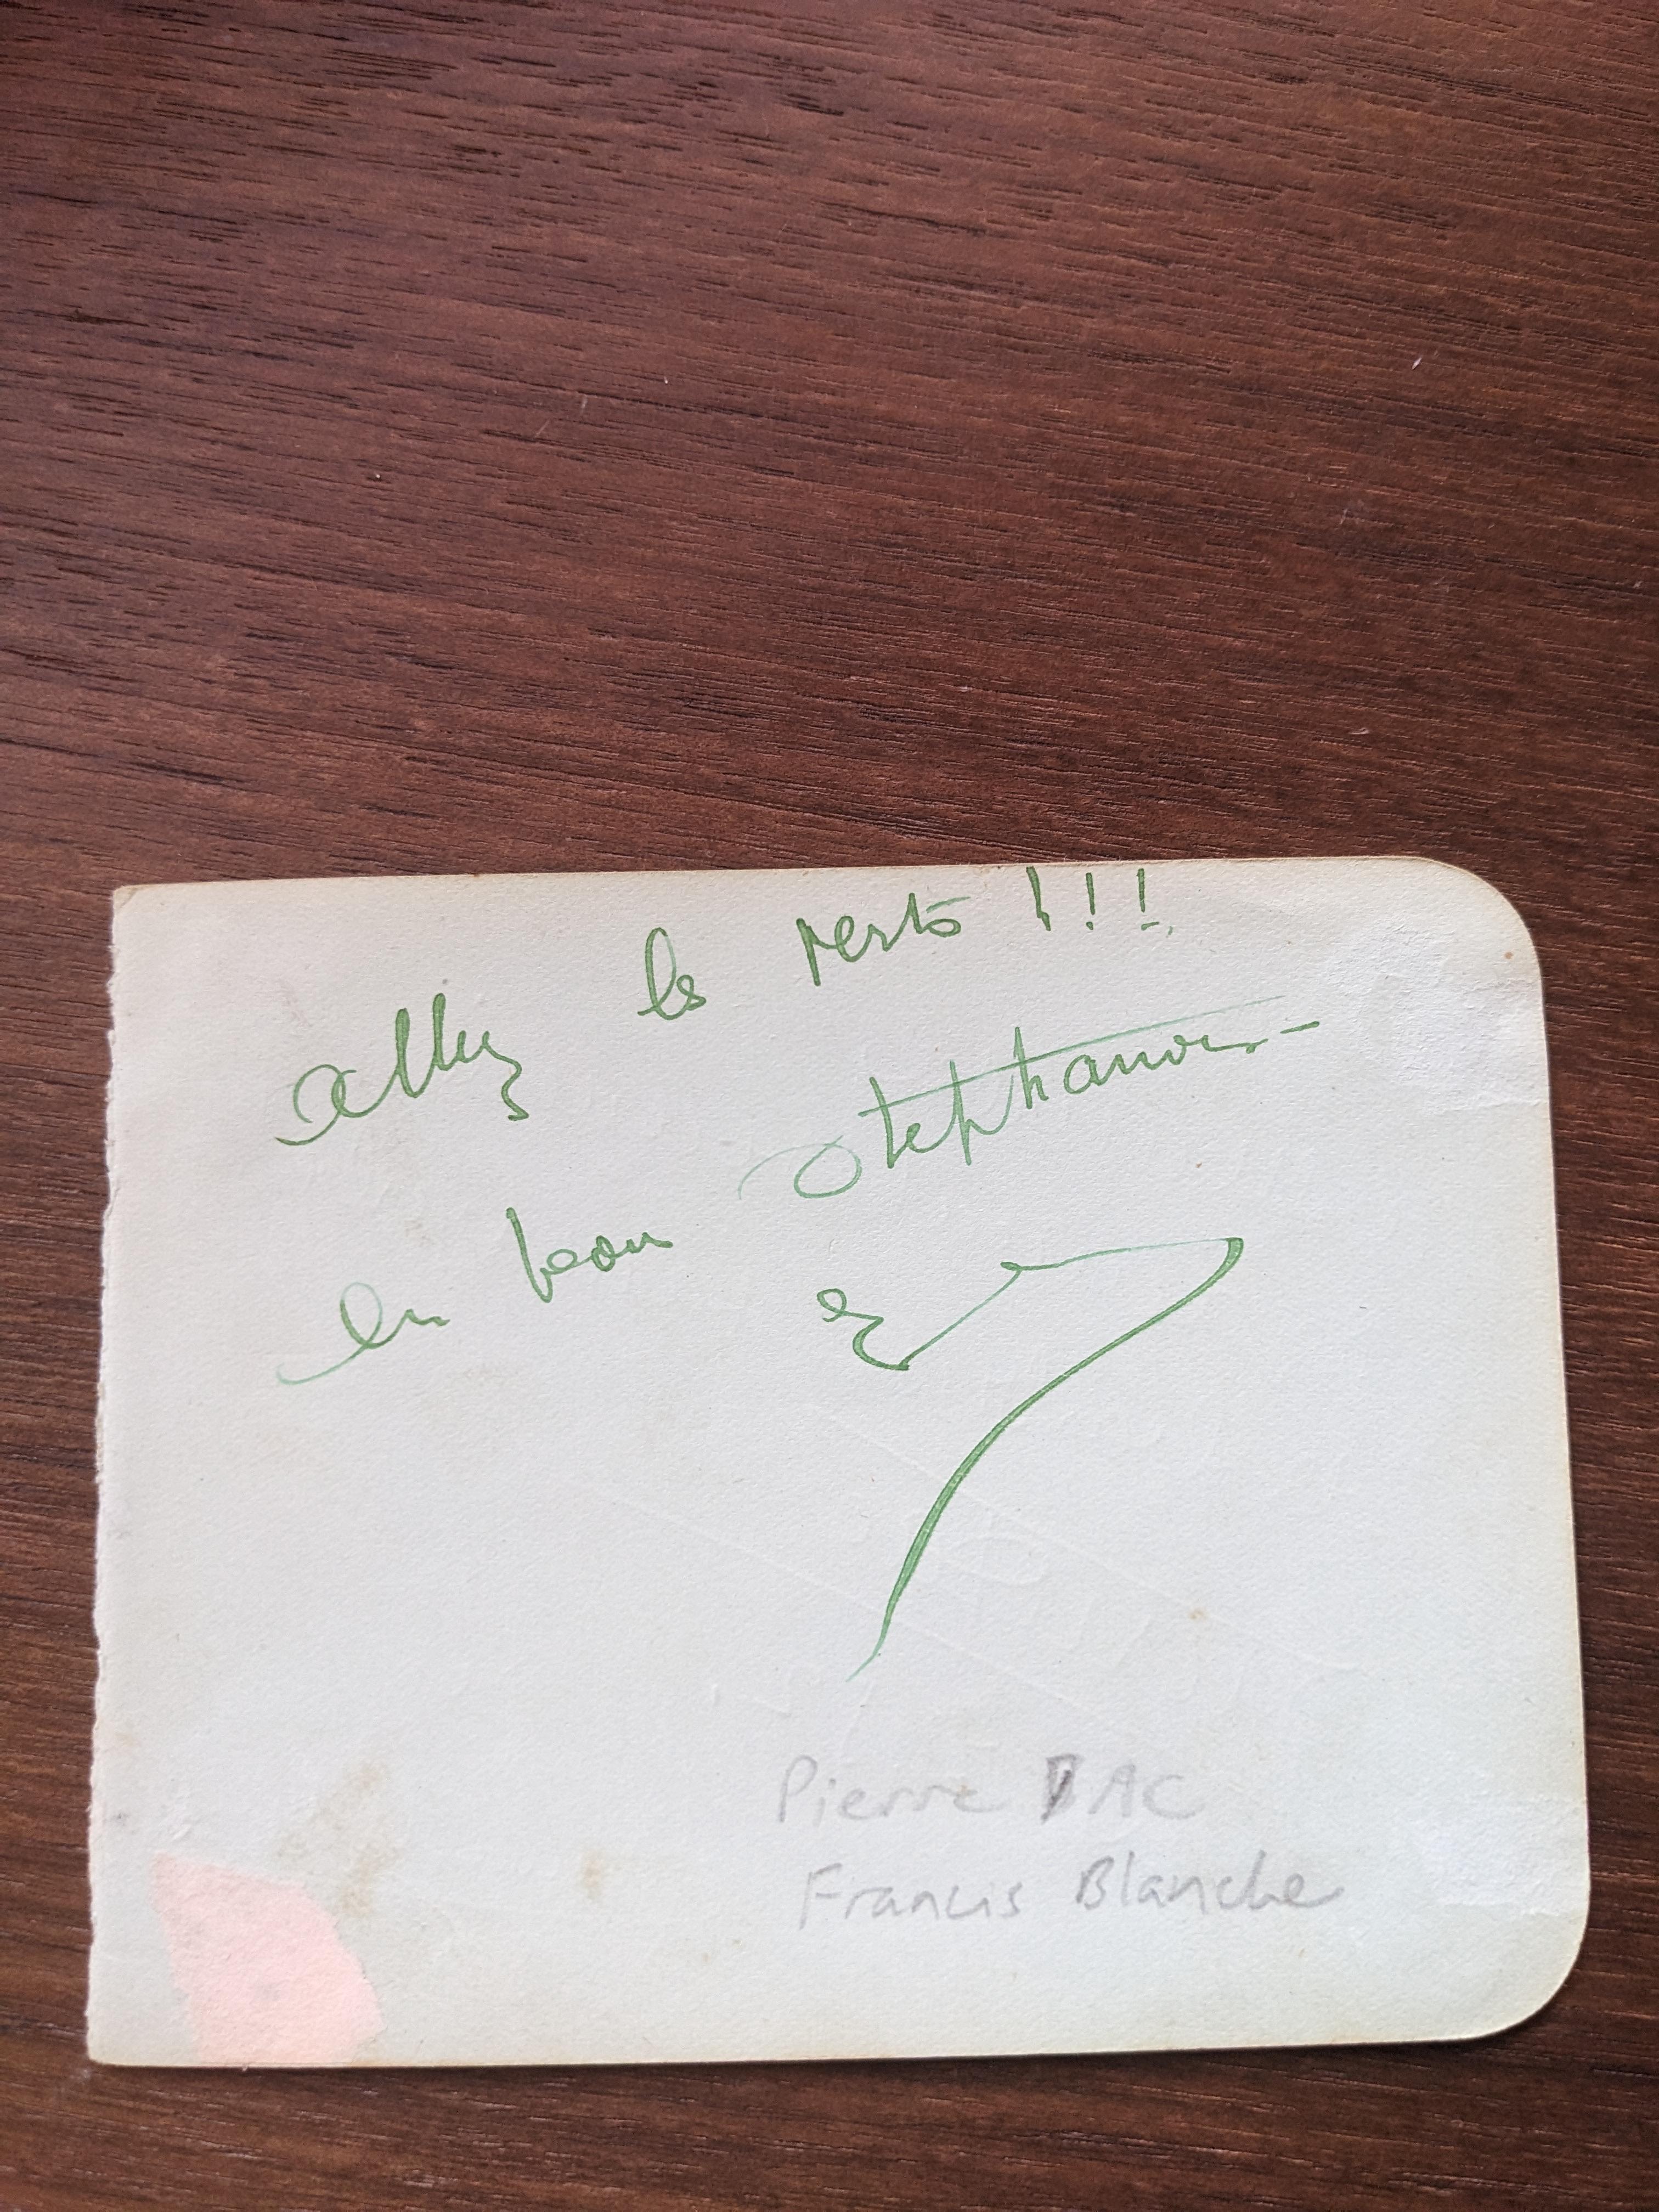 Allez les verts !!!
en Stephanois -
Pierre DAC
Francis Blanche